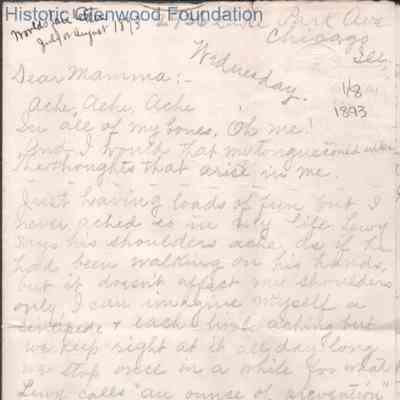 Historic Glenwood Foundation
World's Fair letter
July or August 1893
Park Ave
Chicago
Ill.
Wednesday.
1/8
1893
Dear Mamma:-
Ache, Ache, Ache
In all of my bones, Oh me!
And I would that my tongue could utter
the thoughts that arise in me.
Just having loads of fun but I
never ached so in my life. Lewy
says his shoulders ache as if he
had been walking on his hands,
but it doesn't affect my shoulders
only I can imagine myself a
centipede & each limb aching but
we keep right at it all day long
we stop once in a while for what
Lewy calls "an ounce of prevention"